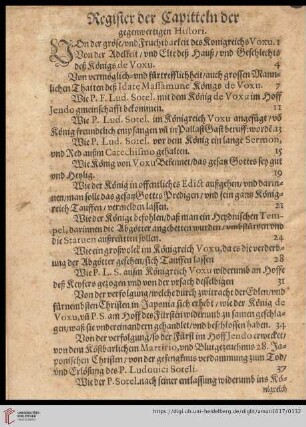 Register der Capitteln der
gegenwertigen Histori.
VOn der grösse/ und Fruchtbarkeit des Königreichs Voxu. 1
Von der Adelkeit/ und Elte deß Hauß/ und Geschlechts
deß Königs de Voxu. 4
Von vermöglich- und fürtrefflichkeit/ auch grossen Mann-
lichen Thatten deß Idate Massamune Königs de Voxu. 7
Wie P. F. Lud. Sotel. mit dem König de Voxu im Hoff
Jendo gemeinschafft bekommen. 11
Wie P. Lud. Sotel. im Königreich Voxu angefügt/ vō
König freundelich empfangen vñ in Pallast Gast beruffē worde. 13
Wie P. Lud. Sotel. vor dem König ein lange Sermon,
und Red außm Catechismo gehalten. 15
Wie König von Voxu Bekennet/ das gesatz Gottes sey gut
und Heylig. 19
Wie der König in offentliches Edict außgehen/ und darin-
nen/ man sollt das gesatz Gottes Predigen/ und sein gantz König-
reich Tauffen/ vermelden lassen. 21
Wie der König befohlen/ daß man ein Heydnischen Tem-
pel/ darinnen die Abgötter angebetten wurden/ umbstürtzen und
die Statuen außreütten sollen. 24
Wie ein groß volck im Königreich Voxu, da es die verderb-
ung der Abgötter gesehen/ sich Tauffen lassen 28
Wie P. L. S. außm Königreich Voxu widerumb an Hoffe
deß Keysers gezogen und von der ursach desselbigen 31
Von der verfolgung/ welche durch zwitrach der Edlen/ und
fürnembsten Christen in Japonia sich erhebt/ wie der König de
Voxu, vñ P. S. am Hoff deß Fürsten widerumb zusamen geschla-
gen/ was sie undereinander gehandlet/ und beschlossen haben. 34
Von der verfolgung/ so der Fürst im Hoff Jendo erwecket/
von dem Köstbarlichem Martirio, und Blutgezeugknus 28. Ja-
ponischer Christen/ von der gefengknus verdammung zum Tod/
und Erlösung des P. Ludouici Soteli. 37
Wie der P. Sotel. nach seiner außlassung widerumb ins Kö-
nigreich
UNIVERSITÄTS-
BIBLIOTHEK
HEIDELBERG
https://digi.ub.uni-heidelberg.de/diglit/amati1617/0132